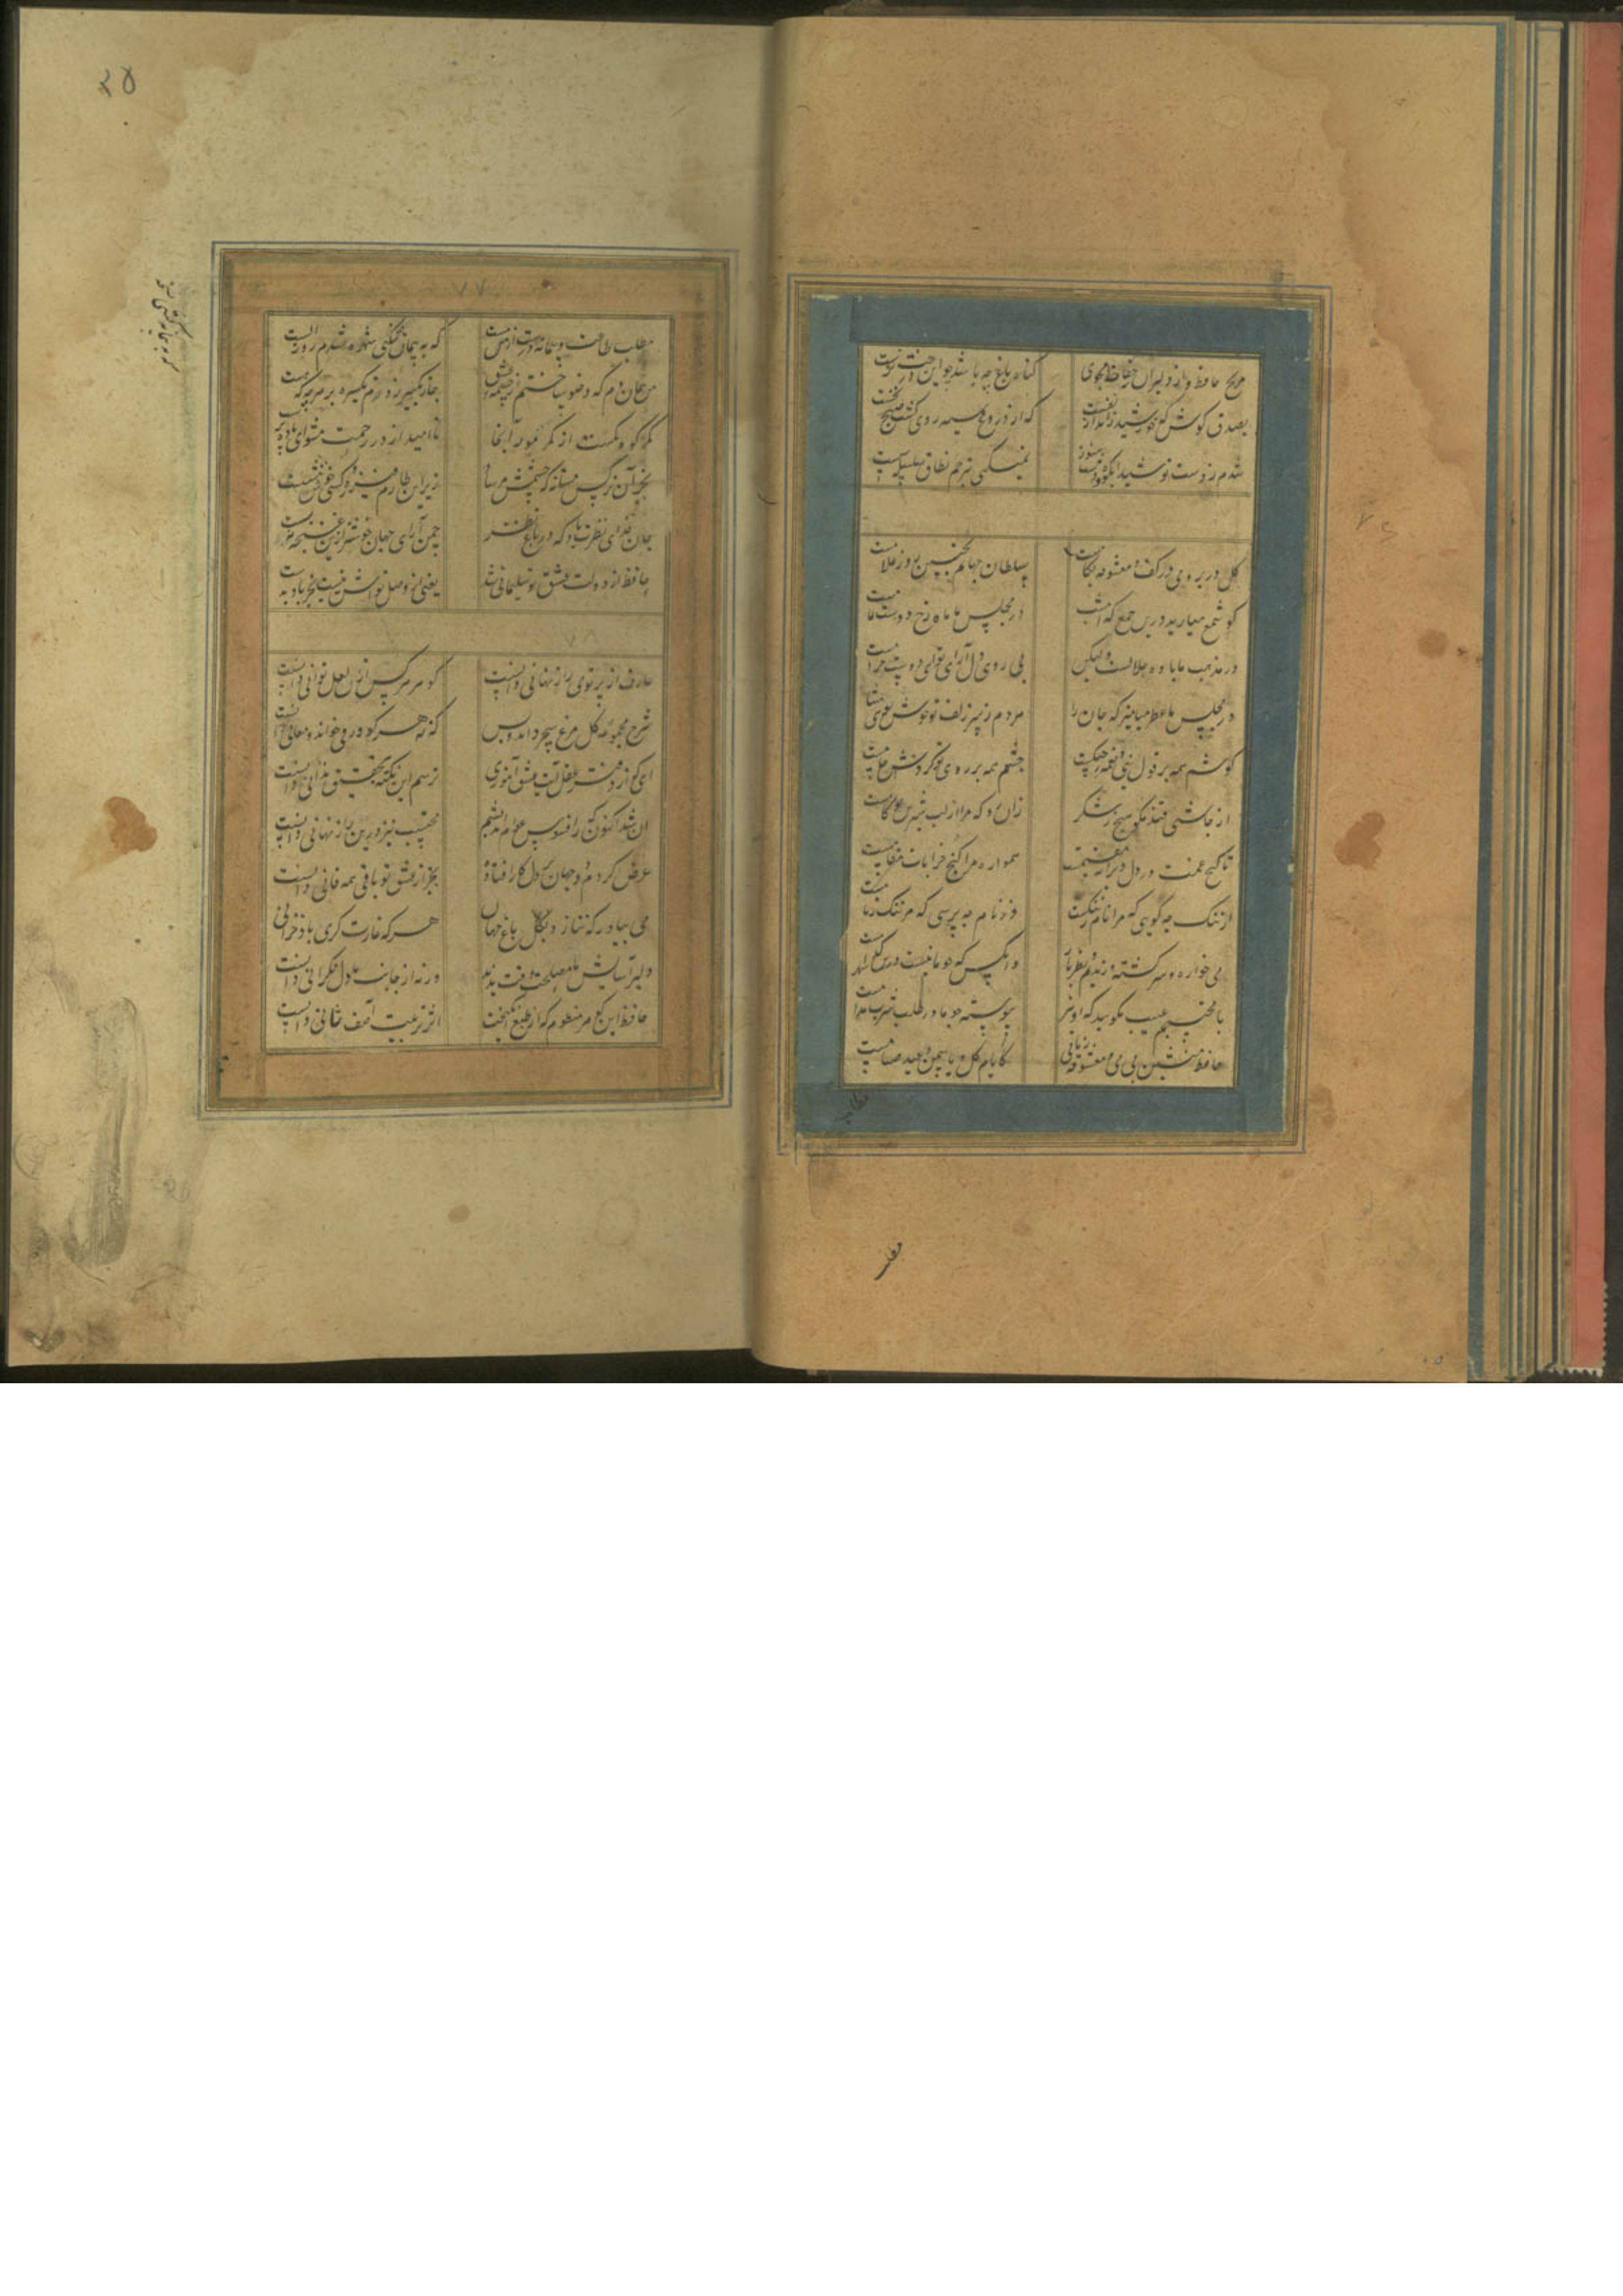 مرنج حافظ و از دلبران حفاظ مجوی گناه باغ چه باشد چو این درخت نرست
بصدق کوش که خورشید زاید از نفست که از دروغ سیه روی گشت صبح نخست
شدم ز دست تو شیدای کوه و دشت هنوز نمیکنی بترحم نطاق سلسله سست
گل در بر و می در کف و معشوقه بکامست سلطان جهانم بچنین روز غلامست
گو شمع میارید درین جمع که امشب در مجلس ما ماه رخ دوست تمامست
در مذهب ما باده حلالست ولیکن بی روی دل آرای تو ای دوست حرامست
در مجلس ما عطر میامیز که جان را هر دم ز سر زلف تو خوش بوی مشامست
گوشم همه بر قول نی و نغمه چنگست چشمم همه بر روی تو و گردش جامست
از چاشنی قند مگو هیچ و ز شکر زان رو که مرا از لب شیرین تو کامست
تا گنج غمت در دل ویرانه مقیمست همواره مرا کنج خرابات مقامست
از ننگ چه گویی که مرا نام ز ننگست وز نام چه پرسی که مرا ننگ ز نامست
می خواره و سرگشته و رندیم و نظرباز وانکس که چو ما نیست درین شهر کدامست
با محتسبم عیب مگویید که او نیز پیوسته چو ما در طلب شرب مدامست
حافظ منشین بی می و معشوقه زمانی کایام گل و یاسمن و عید صیامست
مطلب
۳۵
۷۷
مطلب طاعت و پیمان درست از من مست که به پیمانه کشی شهره شدم روز الست
من همان دم که وضو ساختم از چشمه عشق چار تکبیر زدم یکسره بر هر چه که هست
کمر کوه کمست از کمر مور اینجا ناامید از در رحمت مشو ای باده پرست
بجز آن نرگس مستانه که چشمش مرساد زیر این طارم فیروزه کسی خوش ننشست
جان فدای نظرت باد که در باغ نظر چمن آرای جهان خوشتر ازین غنچه نبست
حافظ از دولت عشق تو سلیمانی شد یعنی از وصل تواش نیست بجز باد بدست
۷۸
عارف از پرتو می راز نهانی دانست گوهر هر کس ازین لعل توانی دانست
شرح مجموعه گل مرغ سحر داند و بس که نه هر کو ورقی خواند معانی دانست
ای که از دفتر عقل آیت عشق آموزی ترسم این نکته بتحقیق ندانی دانست
آن شد اکنون که ز افسوس عوام اندیشم محتسب نیز درین راز نهانی دانست
عرض کردم دو جهان بر دل کار افتاده بجز از عشق تو باقی همه فانی دانست
می بیاور که ننازد بگل باغ جهان هر که غارت گری باد خزانی
دلبر آسایش ما مصلحت وقت ندید ورنه از جانب ما دل نگرانی دانست
حافظ این گوهر منظوم که از طبع انگیخت اثر تربیت آصف ثانی دانست